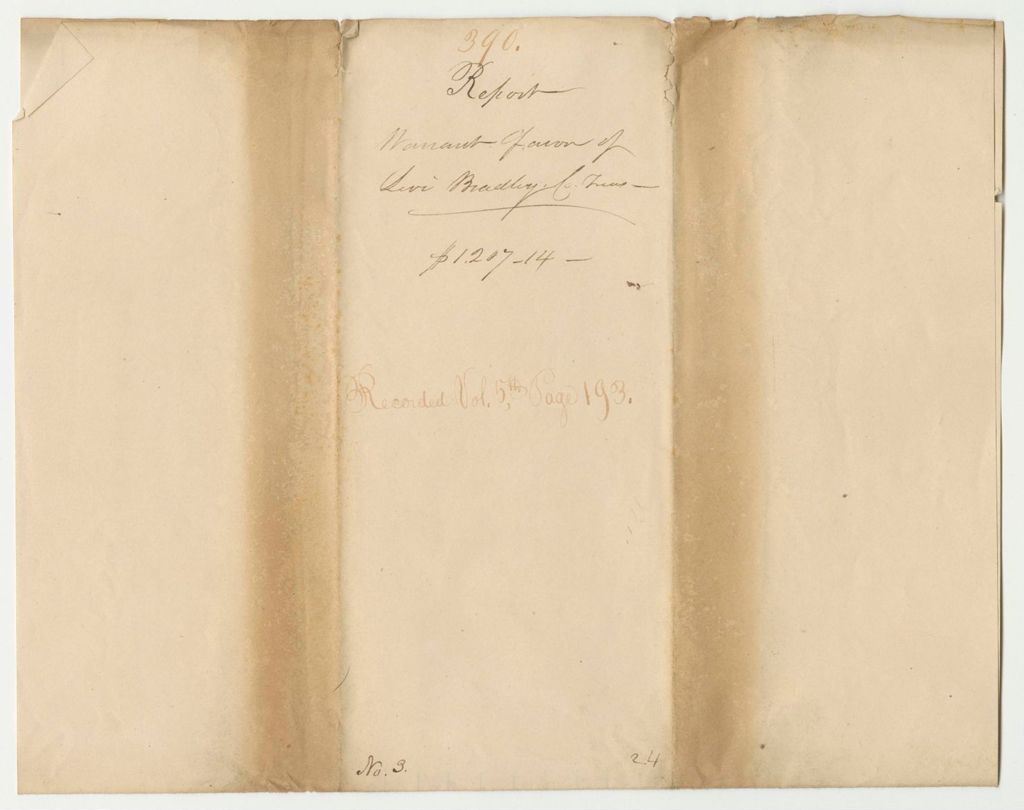 390.
Report
Warrant favor of
Levi Bradley, Co. Treas—
$1.207-14—
Recorded Vol. 5,th Page 193.
No. 3.
24